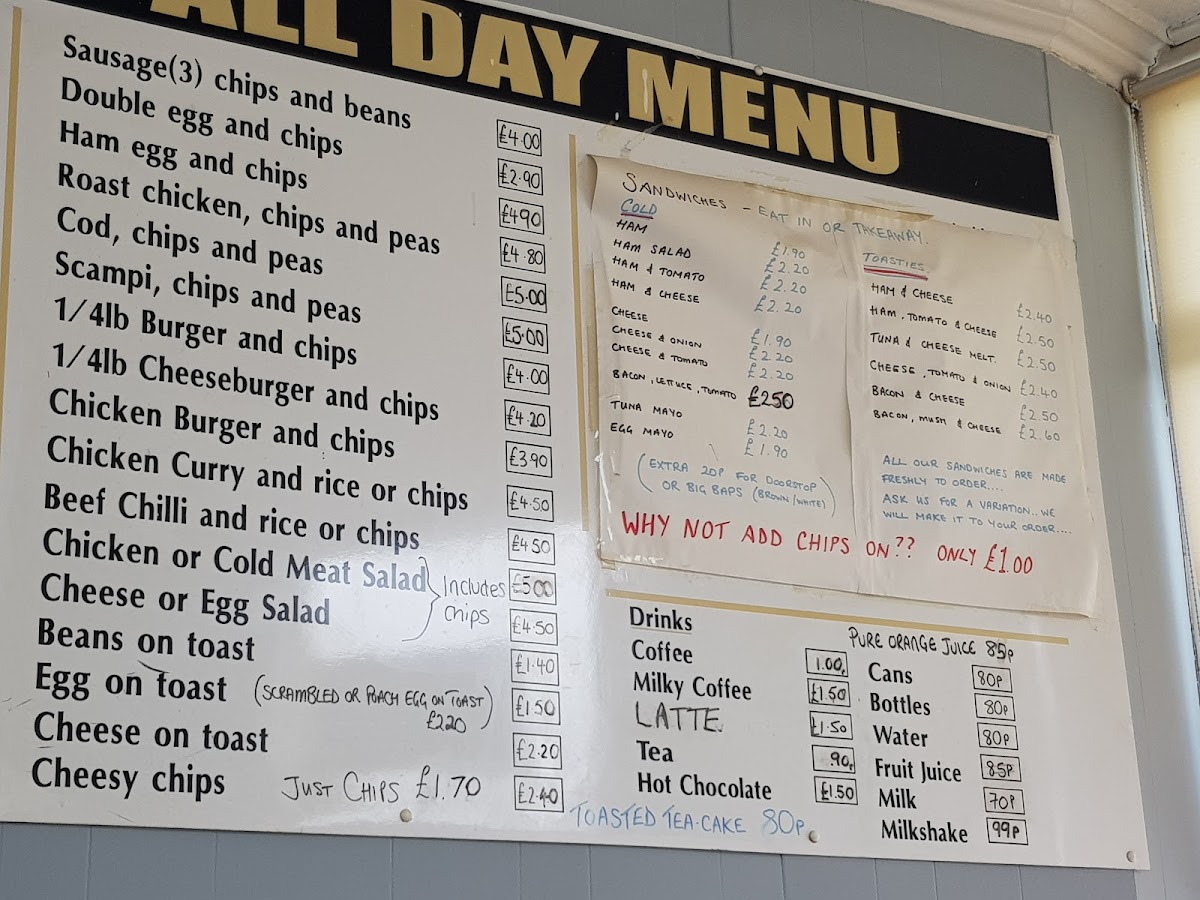 ALL DAY MENU
Sausage(3) chips and beans £4.00
Double egg and chips £2.90
Ham egg and chips £490
Roast chicken, chips and peas £4.80
Cod, chips and peas £5.00
Scampi, chips and peas £5.00
1/4lb Burger and chips £4.00
1/4lb Cheeseburger and chips £4.20
Chicken Burger and chips £3.90
Chicken Curry and rice or chips £4.50
Beef Chilli and rice or chips £4.50
Chicken or Cold Meat Salad £5.00
Cheese or Egg Salad £4.50
Includes
chips
Beans on toast £1.40
Egg on toast (SCRAMBLED OR POACH EGG ON TOAST) £1.50
£2.20
Cheese on toast £2.20
Cheesy chips £2.40
JUST CHIPS £1.70
SANDWICHES - EAT IN OR TAKEAWAY.
COLD
HAM £1.90
HAM SALAD £2.20
HAM & TOMATO £2.20
HAM & CHEESE £2.20
CHEESE £1.90
CHEESE & ONION £2.20
CHEESE & TOMATO £2.20
BACON, LETTUCE, TOMATO £250
TUNA MAYO £2.20
EGG MAYO £1.90
(EXTRA 20P FOR DOORSTOP
OR BIG BAPS (BROWN/WHITE))
TOASTIES
HAM & CHEESE £2.40
HAM, TOMATO & CHEESE £2.50
TUNA & CHEESE MELT. £2.50
CHEESE, TOMATO & ONION £2.40
BACON & CHEESE £2.50
BACON, MUSH & CHEESE £2.60
ALL OUR SANDWICHES ARE MADE
FRESHLY TO ORDER....
ASK US FOR A VARIATION..WE
WILL MAKE IT TO YOUR ORDER....
WHY NOT ADD CHIPS ON?? ONLY £1.00
Drinks
Coffee 1.00
Milky Coffee £1.50
LATTE £1.50
Tea 90p
Hot Chocolate £1.50
TOASTED TEA-CAKE 80p
PURE ORANGE JUICE 85p
Cans 80P
Bottles 80p
Water 80p
Fruit Juice 85P
Milk 70P
Milkshake 99p